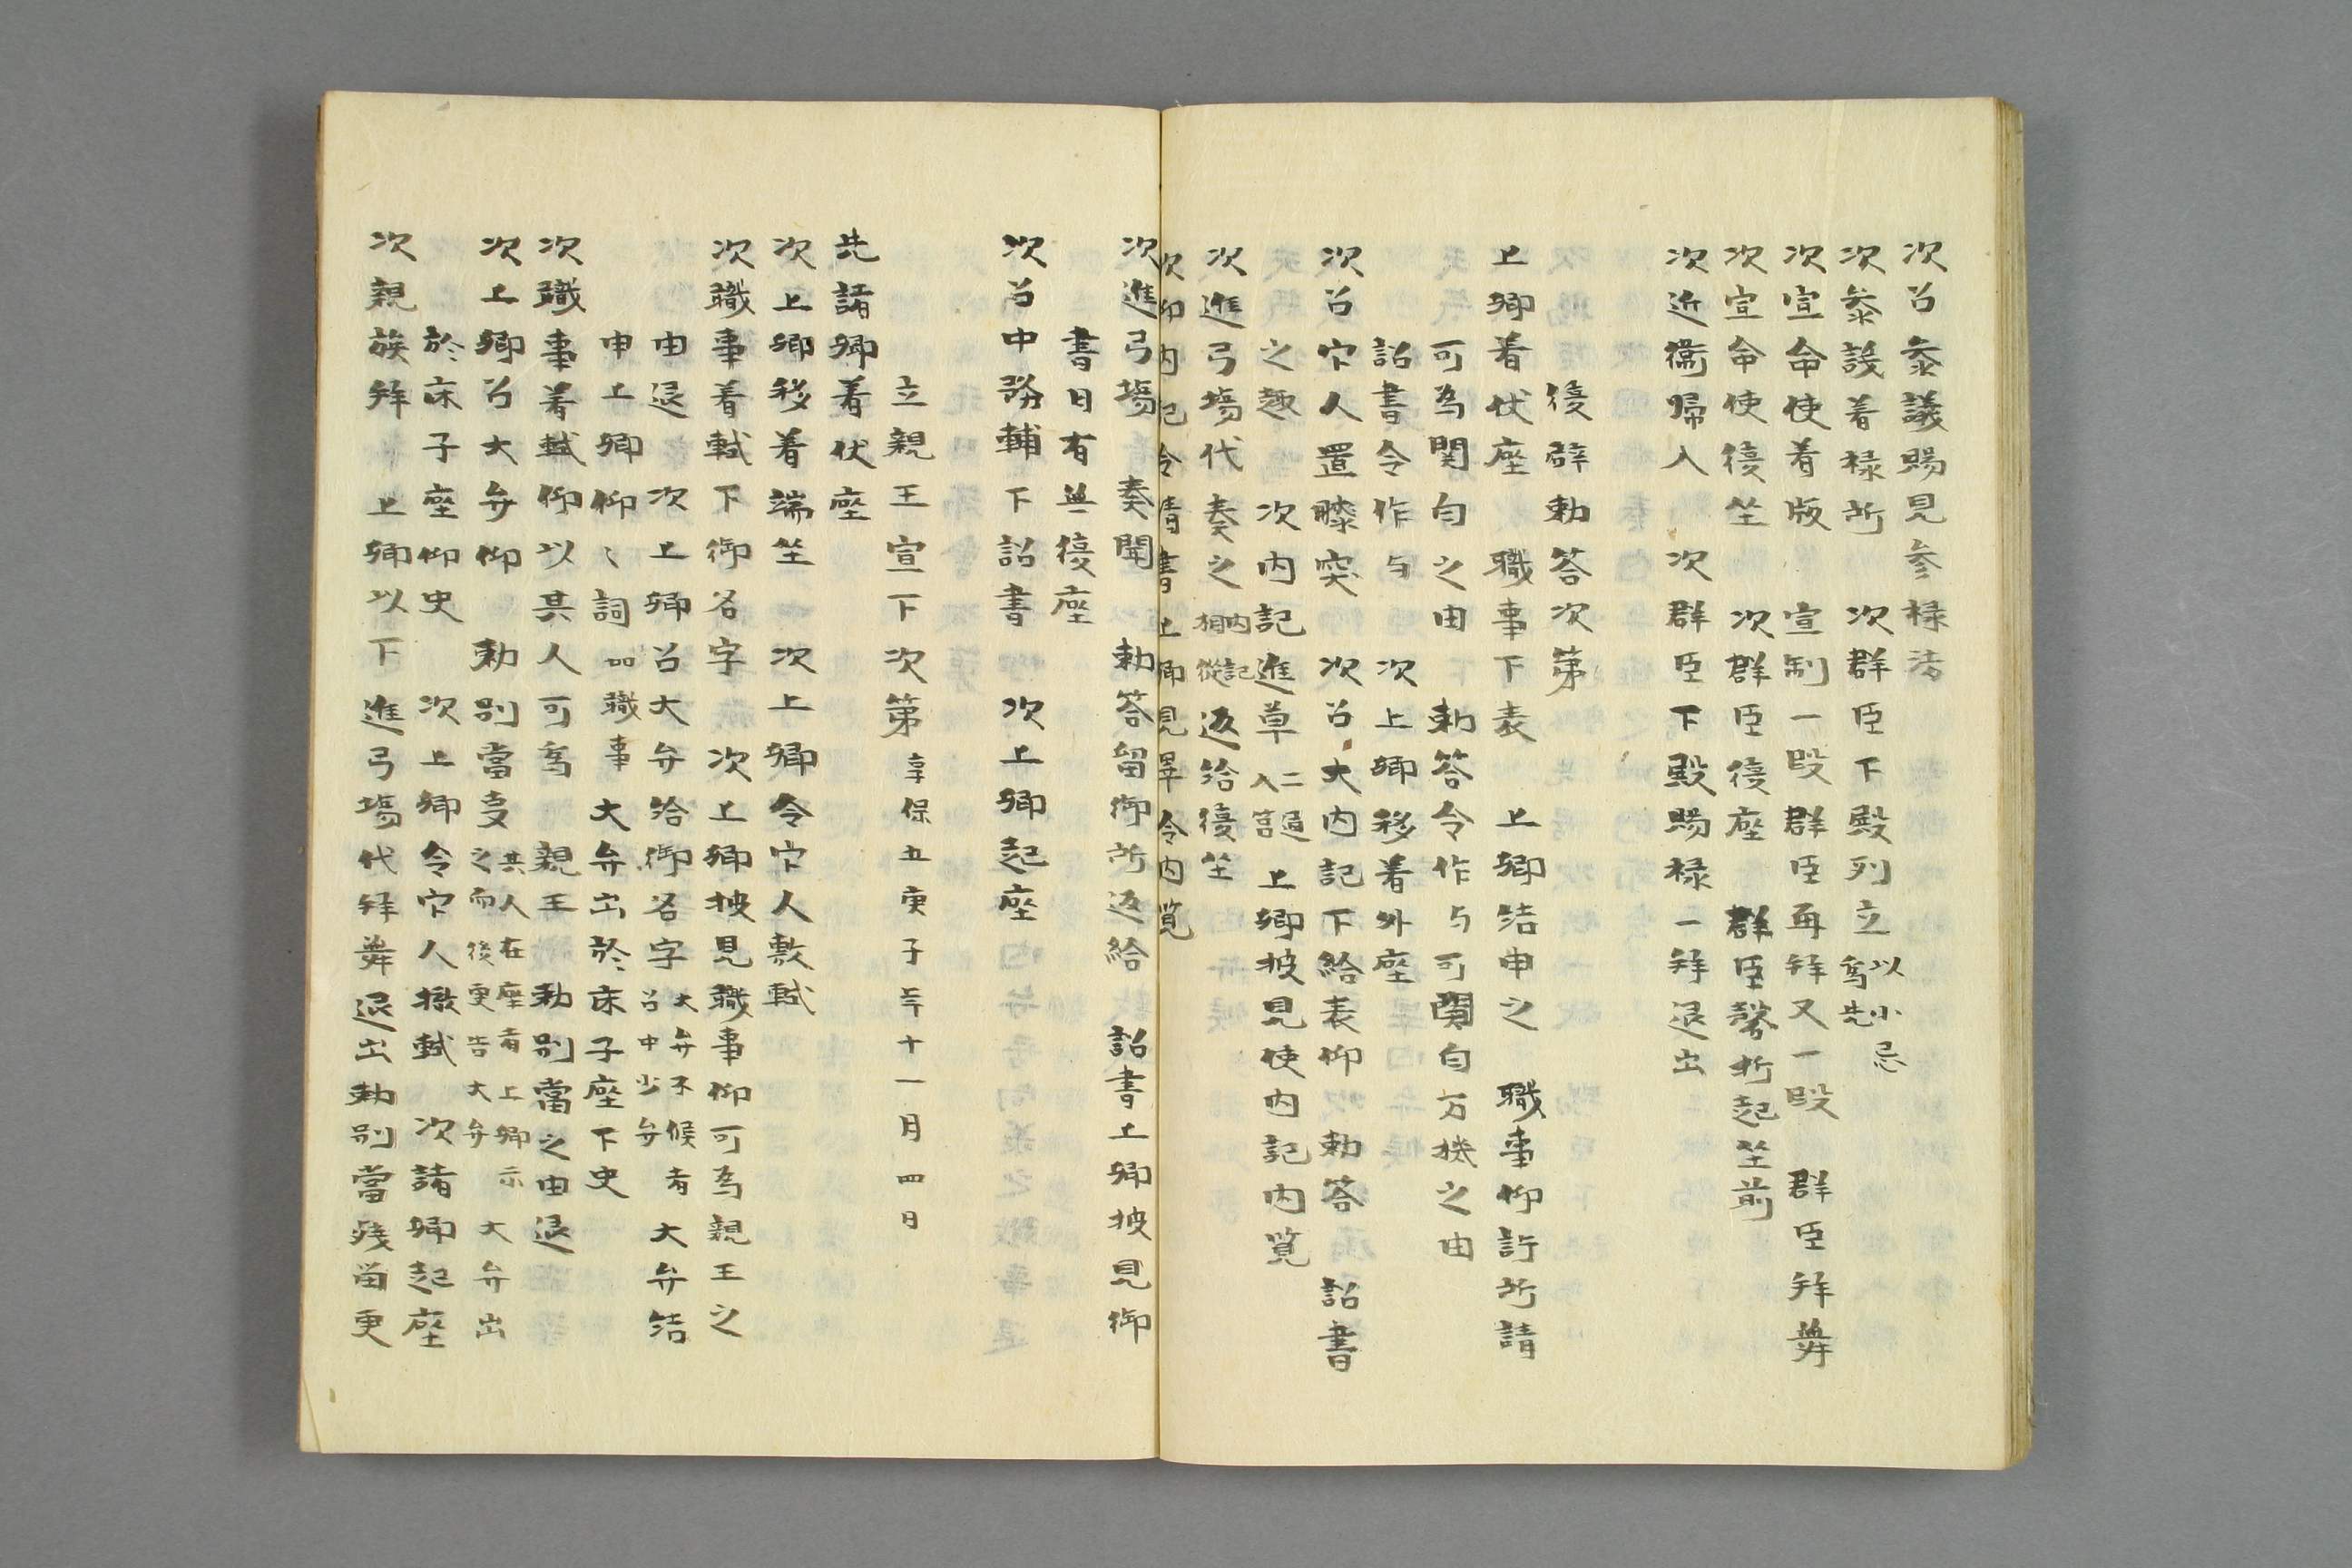 次召参議賜見参禄法
次参議着禄所　次群臣下殿列立以小忌為先
次宣命使着版　宣制一段群臣再拝又一段　群臣拝舞
次宣命使復坐　次群臣復座　群臣磬折起坐前
次近衛帰入　次群臣下殿賜禄一拝退出
復辟勅答次第
上卿着仗座　職事下表　上卿結申之　職事仰許所請
可為関白之由　勅答令作与可関白万機之由
詔書令作与　次上卿移着外座
次召官人置膝突　次召大内記下給表仰勅答　詔書
之趣　次内記進草二通入筥上卿披見使内記内覧
次進弓場代奏之内記相従返給復坐
次仰内記令清書上卿見畢令内覧
次進弓場　奏聞　勅答留御所返給　詔書上卿披見御
書日有無復座
次召中務輔下詔書　次上卿起座
立親王宣下次第享保五庚子年十一月四日
先諸卿着仗座
次上卿移着端坐　次上卿令官人敷軾
次職事着軾下御名字　次上卿披見職事仰可為親王之
由退　次上卿召大弁給御名字大弁不候者召中少弁大弁結
申上卿仰〻詞如職事　大弁出於床子座下史
次職事着軾仰以其人可為　親王　勅別當之由退
次上卿召大弁仰　勅別當事其人在座者上卿示之而後更告大弁大弁出
於床子座仰史　次上卿令官人撤軾　次諸卿起座
次親族拝　上卿以下進弓場代拝舞退出勅別當残留更